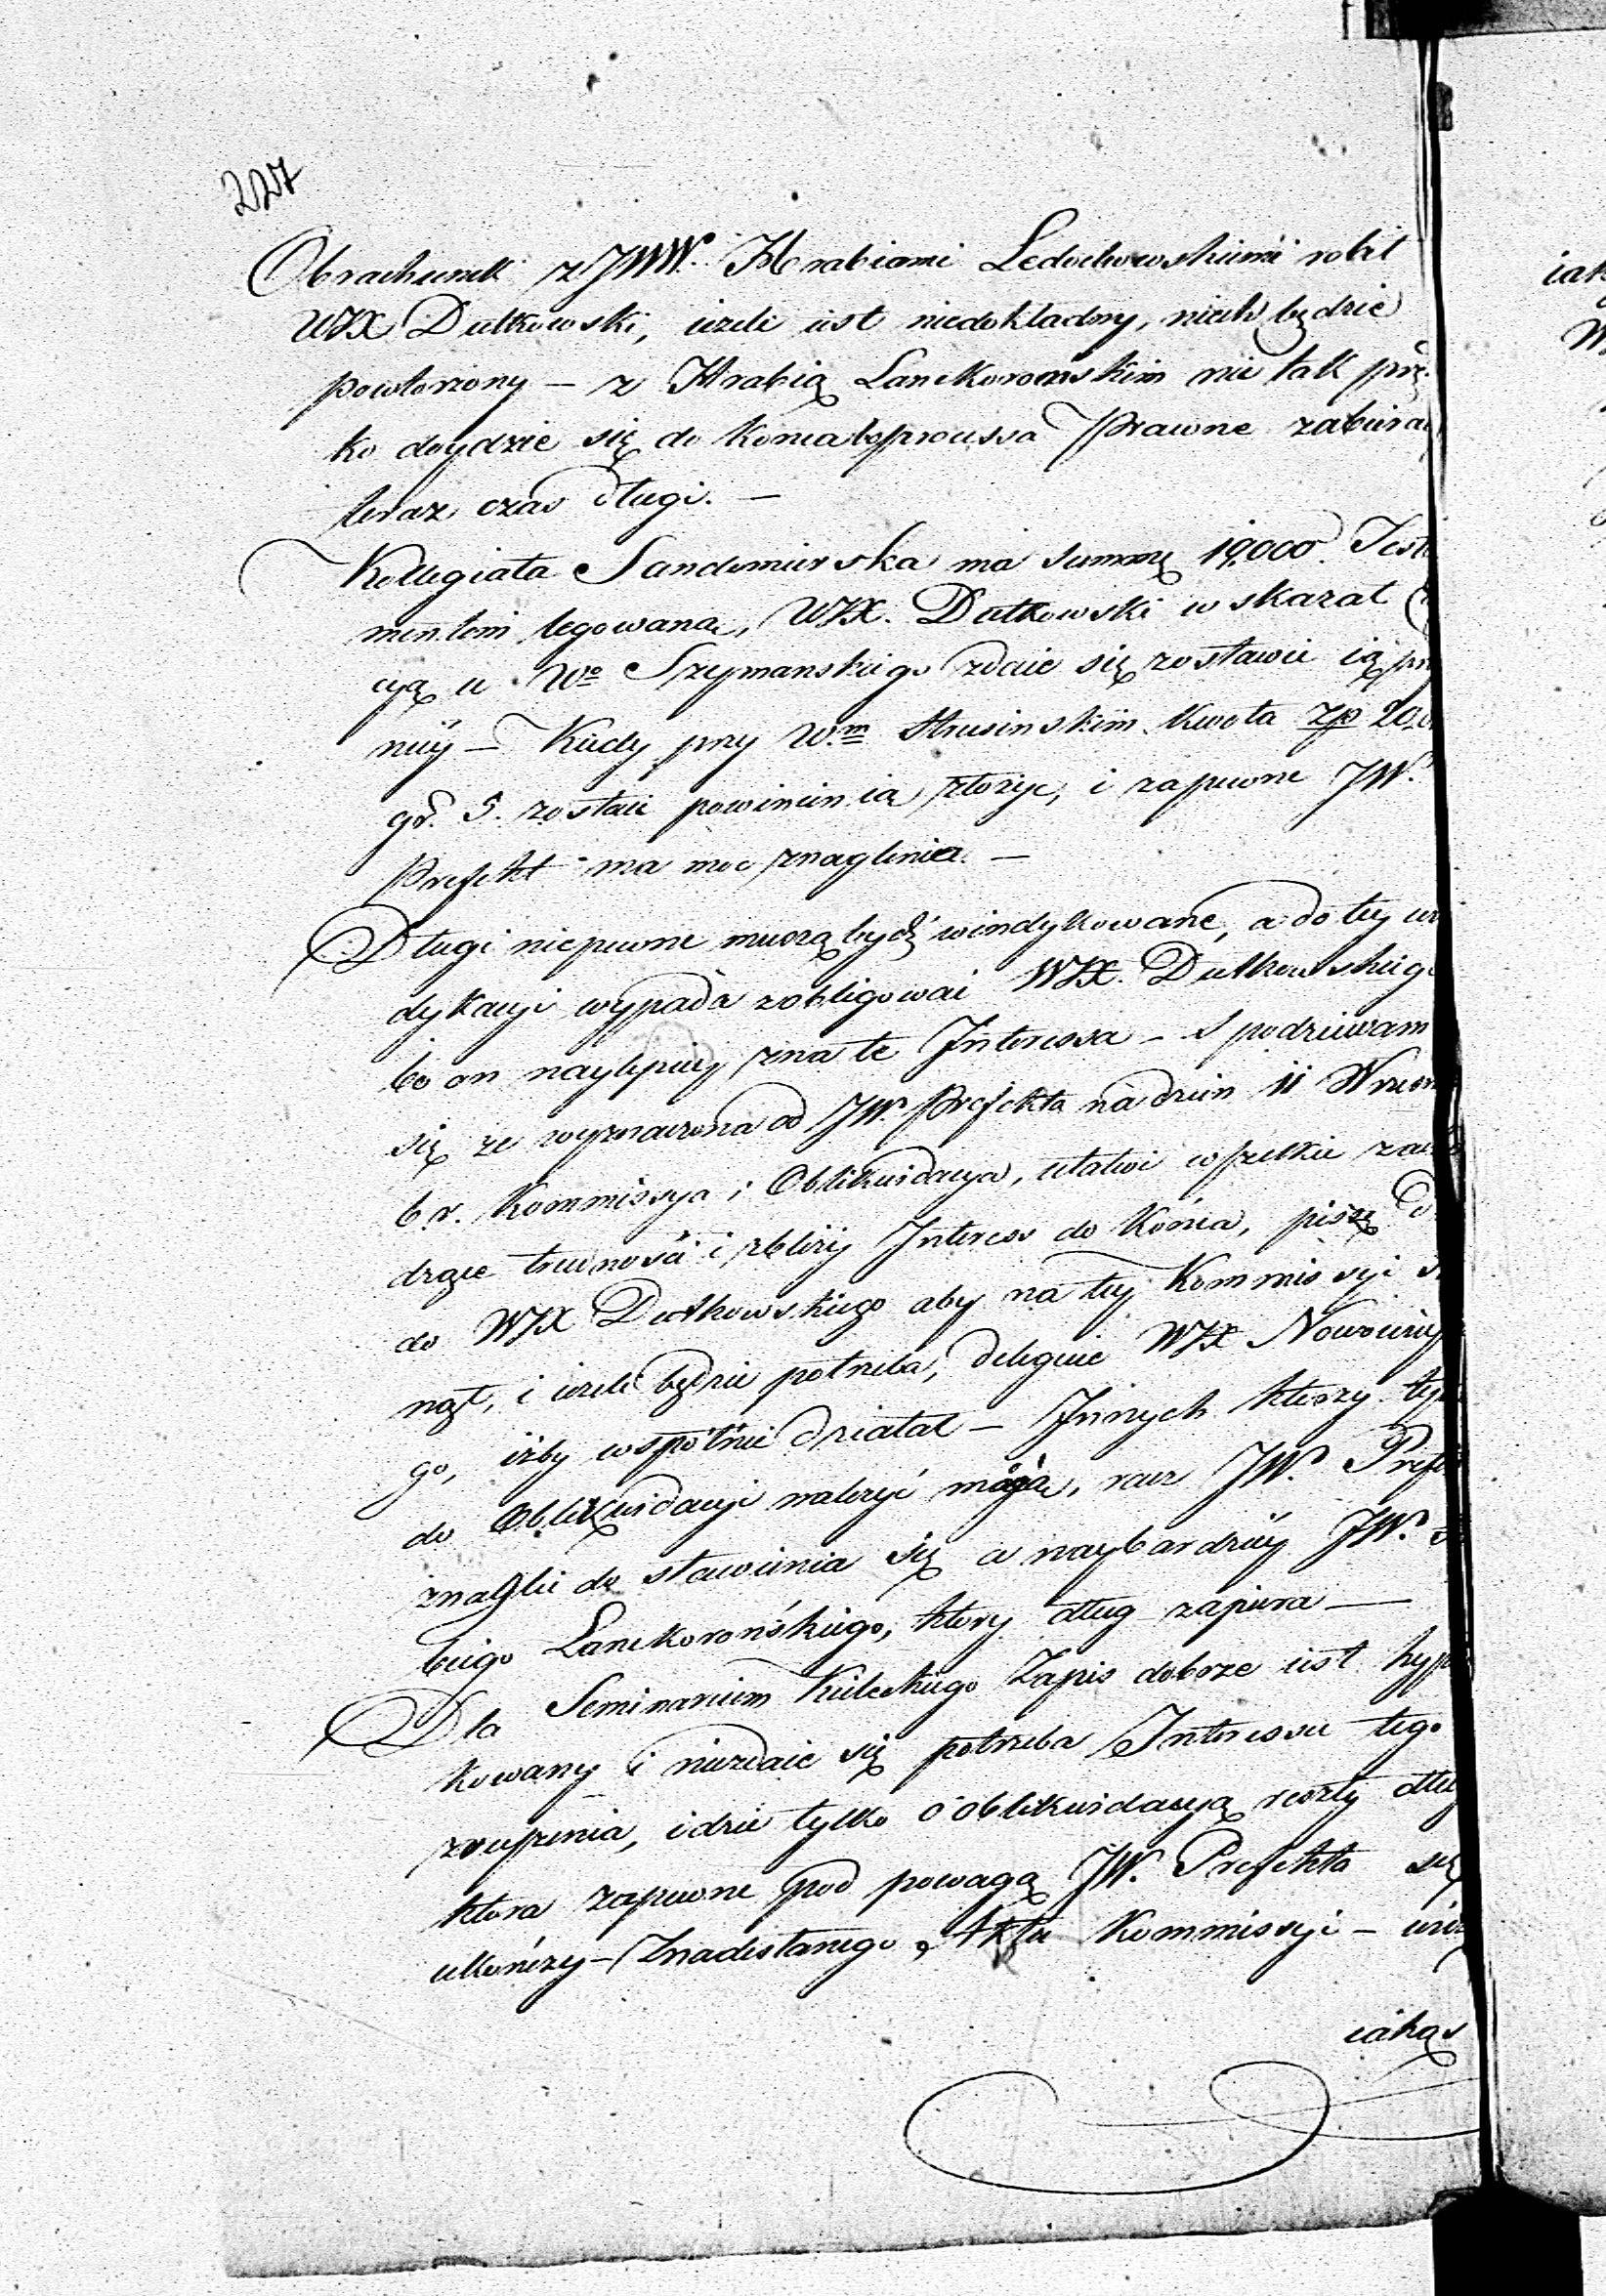 227
Obrachunek z JWW. Hrabiami Ledochowskiemi robił
WJX Dutkowski, ieżeli iest niedokładny, niech będzie
powtorzony – z Hrabią Lanckorońskim nie tak pręd
ko doydzie się do konca bo processa Prawne zabiera
teraz czas długi. –
Kollegiata Sandomierska ma summę 19,000. Testa
mentem legowaną, WJX. Dutkowski wskazał
cyą u Wo Szymanskiego zdaie się zostawić ią przy
niey – Kiedy przy Wm. Strusinskim kwota zp 20.
gr. 5. zostaie powinien ią złożyć, i zapewne JW.
Prefekt ma moc znaglenia. –
Długi niepewne muszą bydź windykowane, a do tey win
dykacyi wypada zobligować WJX. Dutkowskiego
bo on naylepiey zna te Interessa – Spodziewam
się że wyznaczona od JW. Prefekta na dzien 11 Wrześ
b.r. Kommissya i Oblikwidacya, ułatwi wszelkie zacho
dzące trudności i zbliży Interes do końca, piszę
do WJX Dutkowskiego aby na tey Kommissyi
nął, i ieżeli będzie potrzeba, deleguie WJX Nowowiey
go, iżby wspólnie działał – Innych ktorzy
do Oblikwidacyi należyć mogą, racz JW. Prefe
znaglić do stawienia się a naybardziey JW.
biego Lanckorońskiego, ktory dług zapiera —
Dla Seminarium Kieleckiego Zapis dobrze iest hypo
kowany i niezdaie się potrzeba Interessu tego
zruszenia, idzie tylko o oblikwidacyą reszty dłu
ktora zapewne pod powagą JW. Prefekta się
ukończy – Z nadesłanego Aktu Kommissyi –
iakąs
iak
W